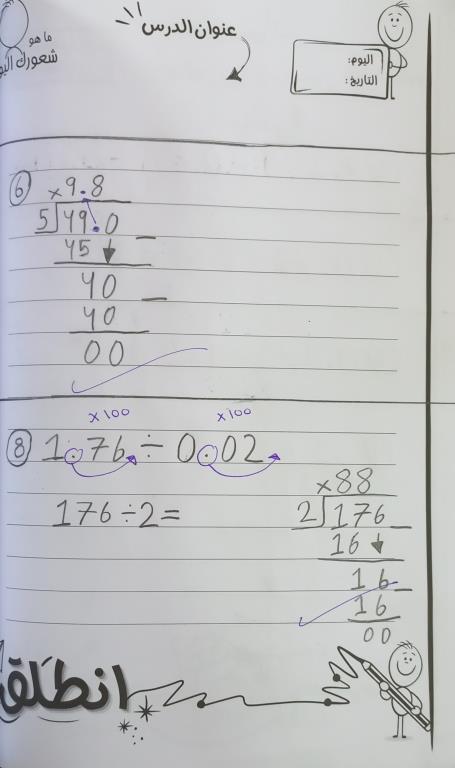 ما هو
شعورك اليو
عنوان الدرس
اليوم:
التاريخ:
6
×9.8
5 49.0
45
40
40
00
×100 ×100
8 1.76 ÷ 0.02
×88
176÷2= 2 176
16
16
16
00
انطلق